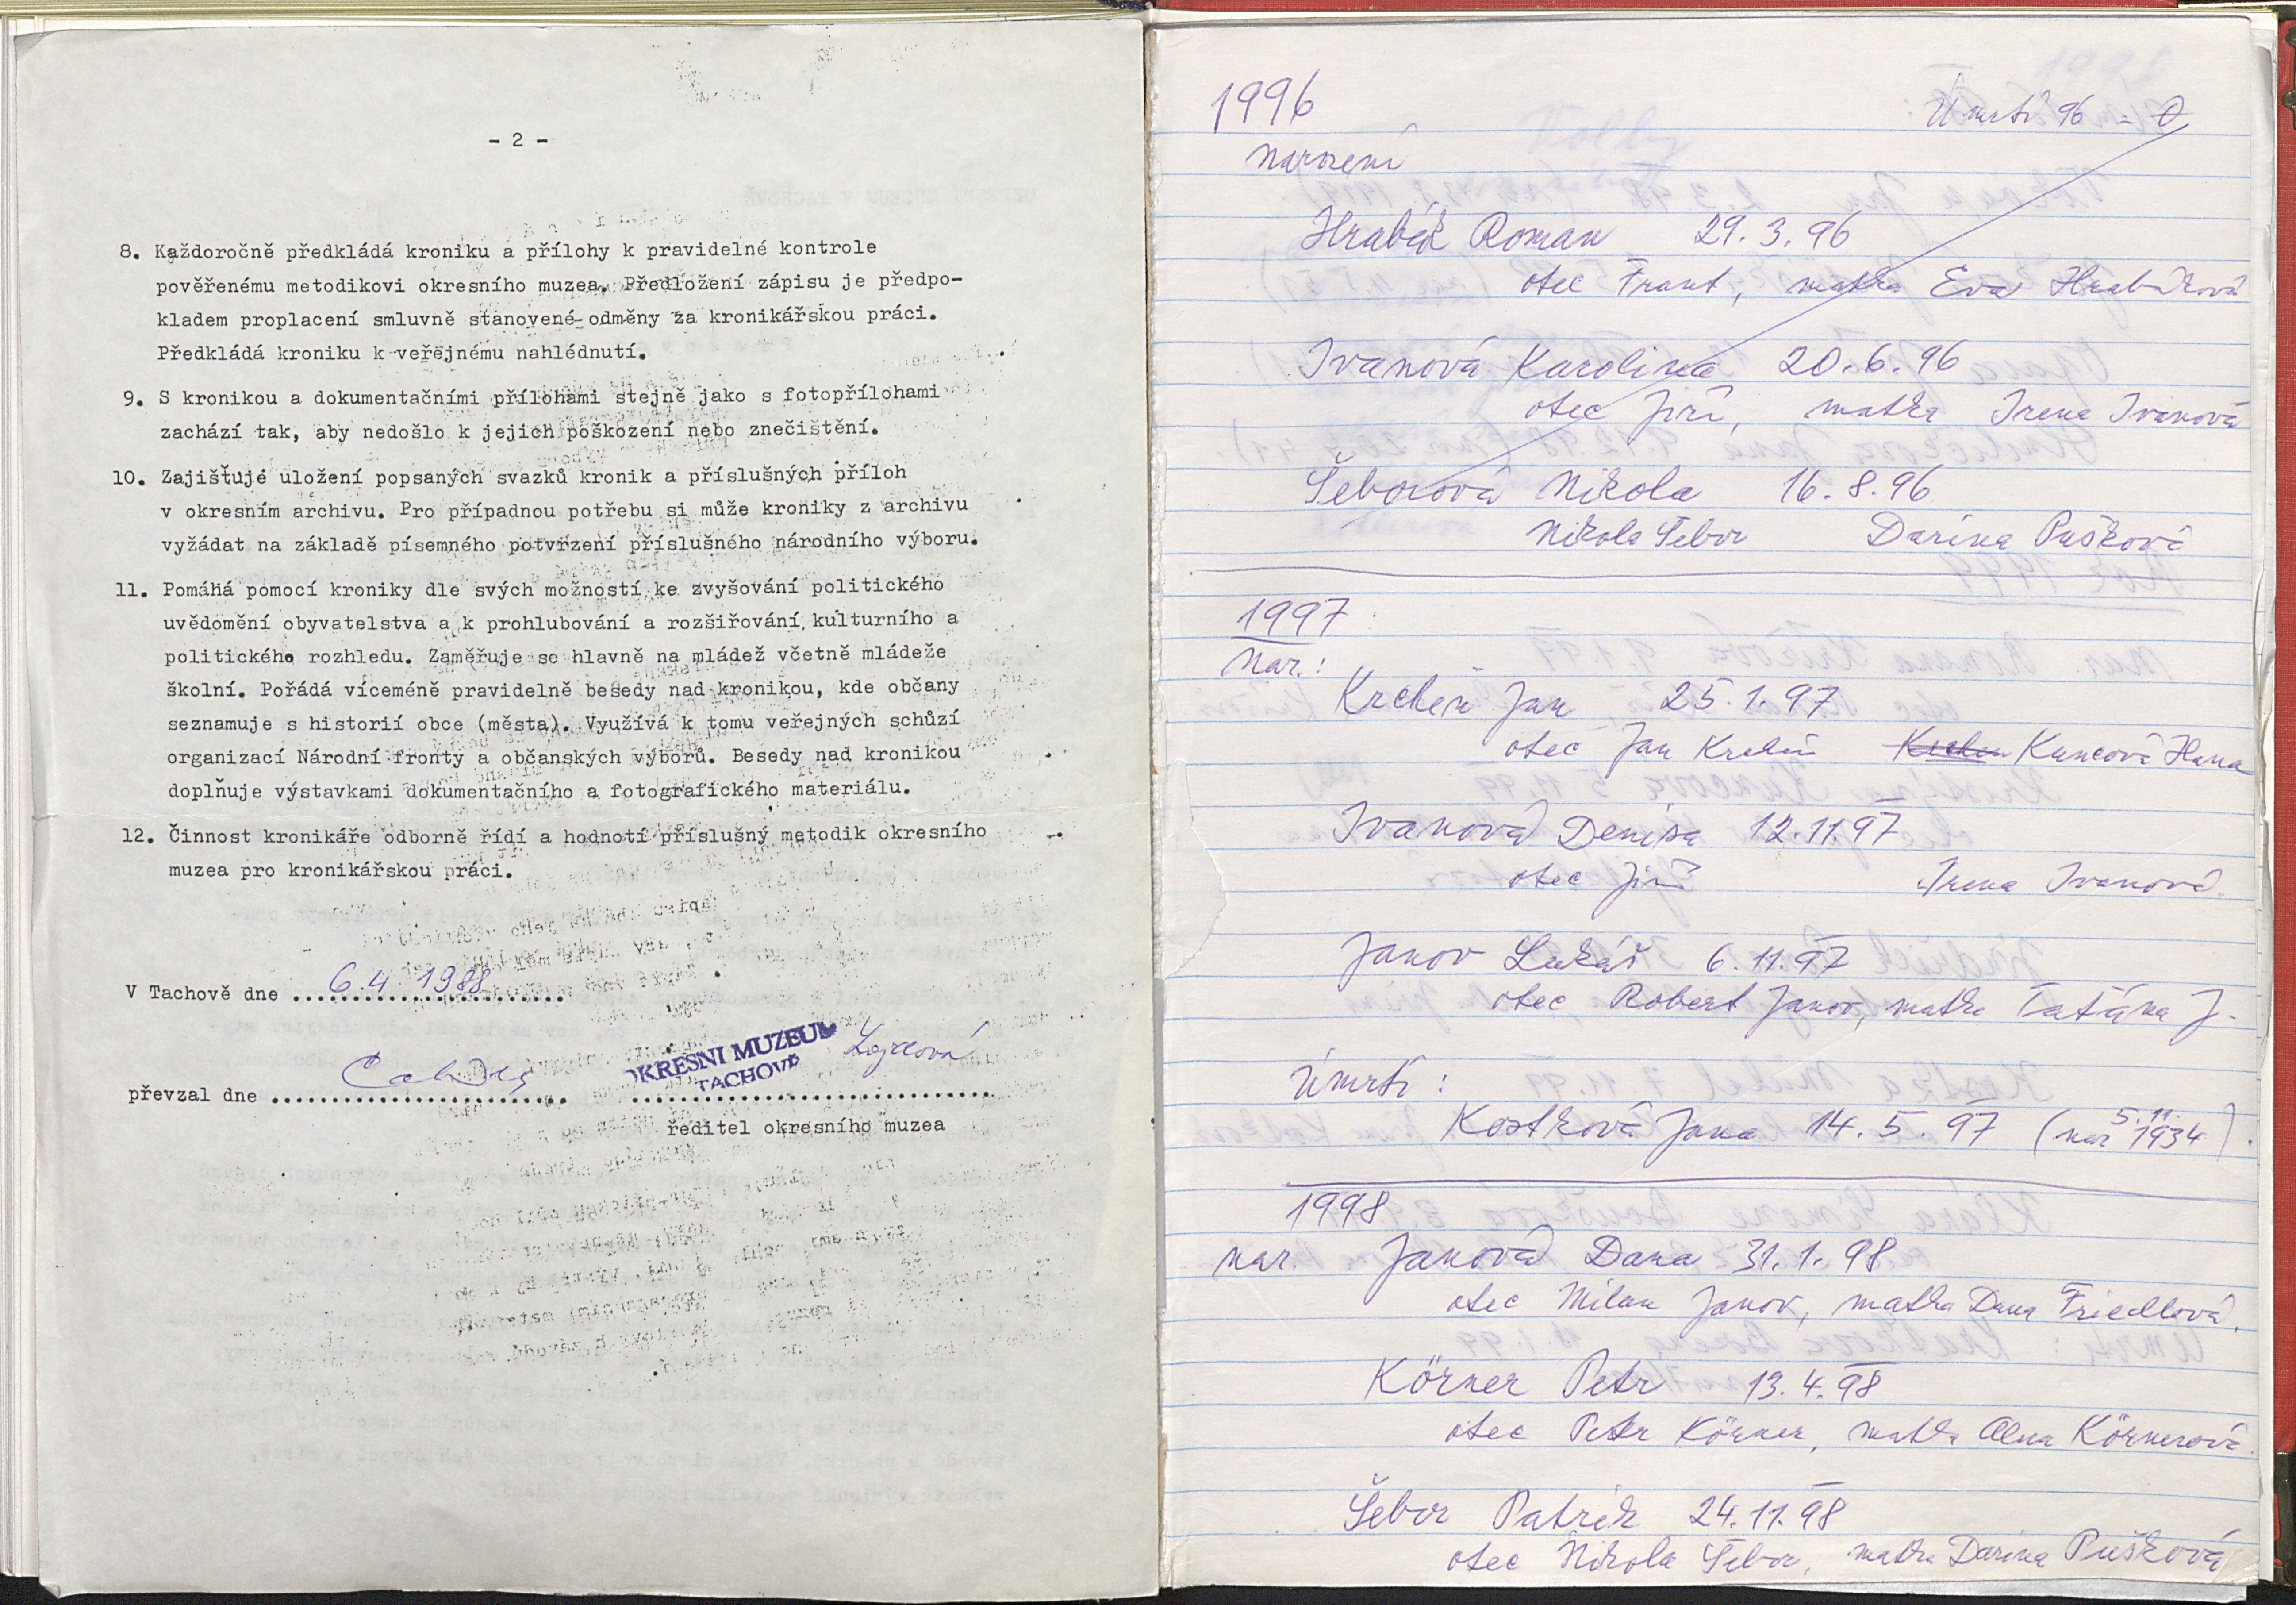 - 2 -
8. Každoročně předkládá kroniku a přílohy k pravidelné kontrole
pověřenému metodikovi okresního muzea. Předložení zápisu je předpo-
kladem proplacení smluvně stanovené odměny za kronikářskou práci.
Předkládá kroniku k veřejnému nahlédnutí.
9. S kronikou a dokumentačními přílohami stejně jako s fotopřílohami
zachází tak, aby nedošlo k jejich poškození nebo znečištění.
10. Zajišťuje uložení popsaných svazků kronik a příslušných příloh
v okresním archivu. Pro případnou potřebu si může kroniky z archivu
vyžádat na základě písemného potvrzení příslušného národního výboru.
11. Pomáhá pomocí kroniky dle svých možností ke zvyšování politického
uvědomění obyvatelstva a k prohlubování a rozšiřování kulturního a
politického rozhledu. Zaměřuje se hlavně na mládež včetně mládeže
školní. Pořádá víceméně pravidelně besedy nad kronikou, kde občany
seznamuje s historií obce (města). Využívá k tomu veřejných schůzí
organizací Národní fronty a občanských výborů. Besedy nad kronikou
doplňuje výstavkami dokumentačního a fotografického materiálu.
12. Činnost kronikáře odborně řídí a hodnotí příslušný metodik okresního
muzea pro kronikářskou práci.
V Tachově dne 6.4.1988
OKRESNI MUZEUM
TACHOVĚ
převzal dne
ředitel okresního muzea
1996
Úmrtí 96 = 0
Narození
Hrabák Roman 29.3.96
otec Frant, matka Eva Hrabáková
Ivanová Karolina 20.6.96
otec Jiří, matka Irena Ivanová
Šeborová Nikola 16.8.96
Nikola Šebor Darina Pušková
1997
Nar.:
Krchen Jan 25.1.97
otec Jan Krchen Krchen Kuncová Hana
Ivanová Denisa 12.11.97
otec Jiří Irena Ivanová
Janov Lukáš 6.11.97
otec Robert Janov, matka Taťána J.
Úmrtí:
Kostková Jana 14.5.97 (nar 5.11. 1934).
1998
nar. Janová Dana 31.1.98
otec Milan Janov, matka Dana Friedlová,
Körner Petr 13.4.98
otec Petr Körner, matka Alena Körnerová.
Šebor Patrik 24.11.98
otec Nikola Šebor, matka Darina Pušková